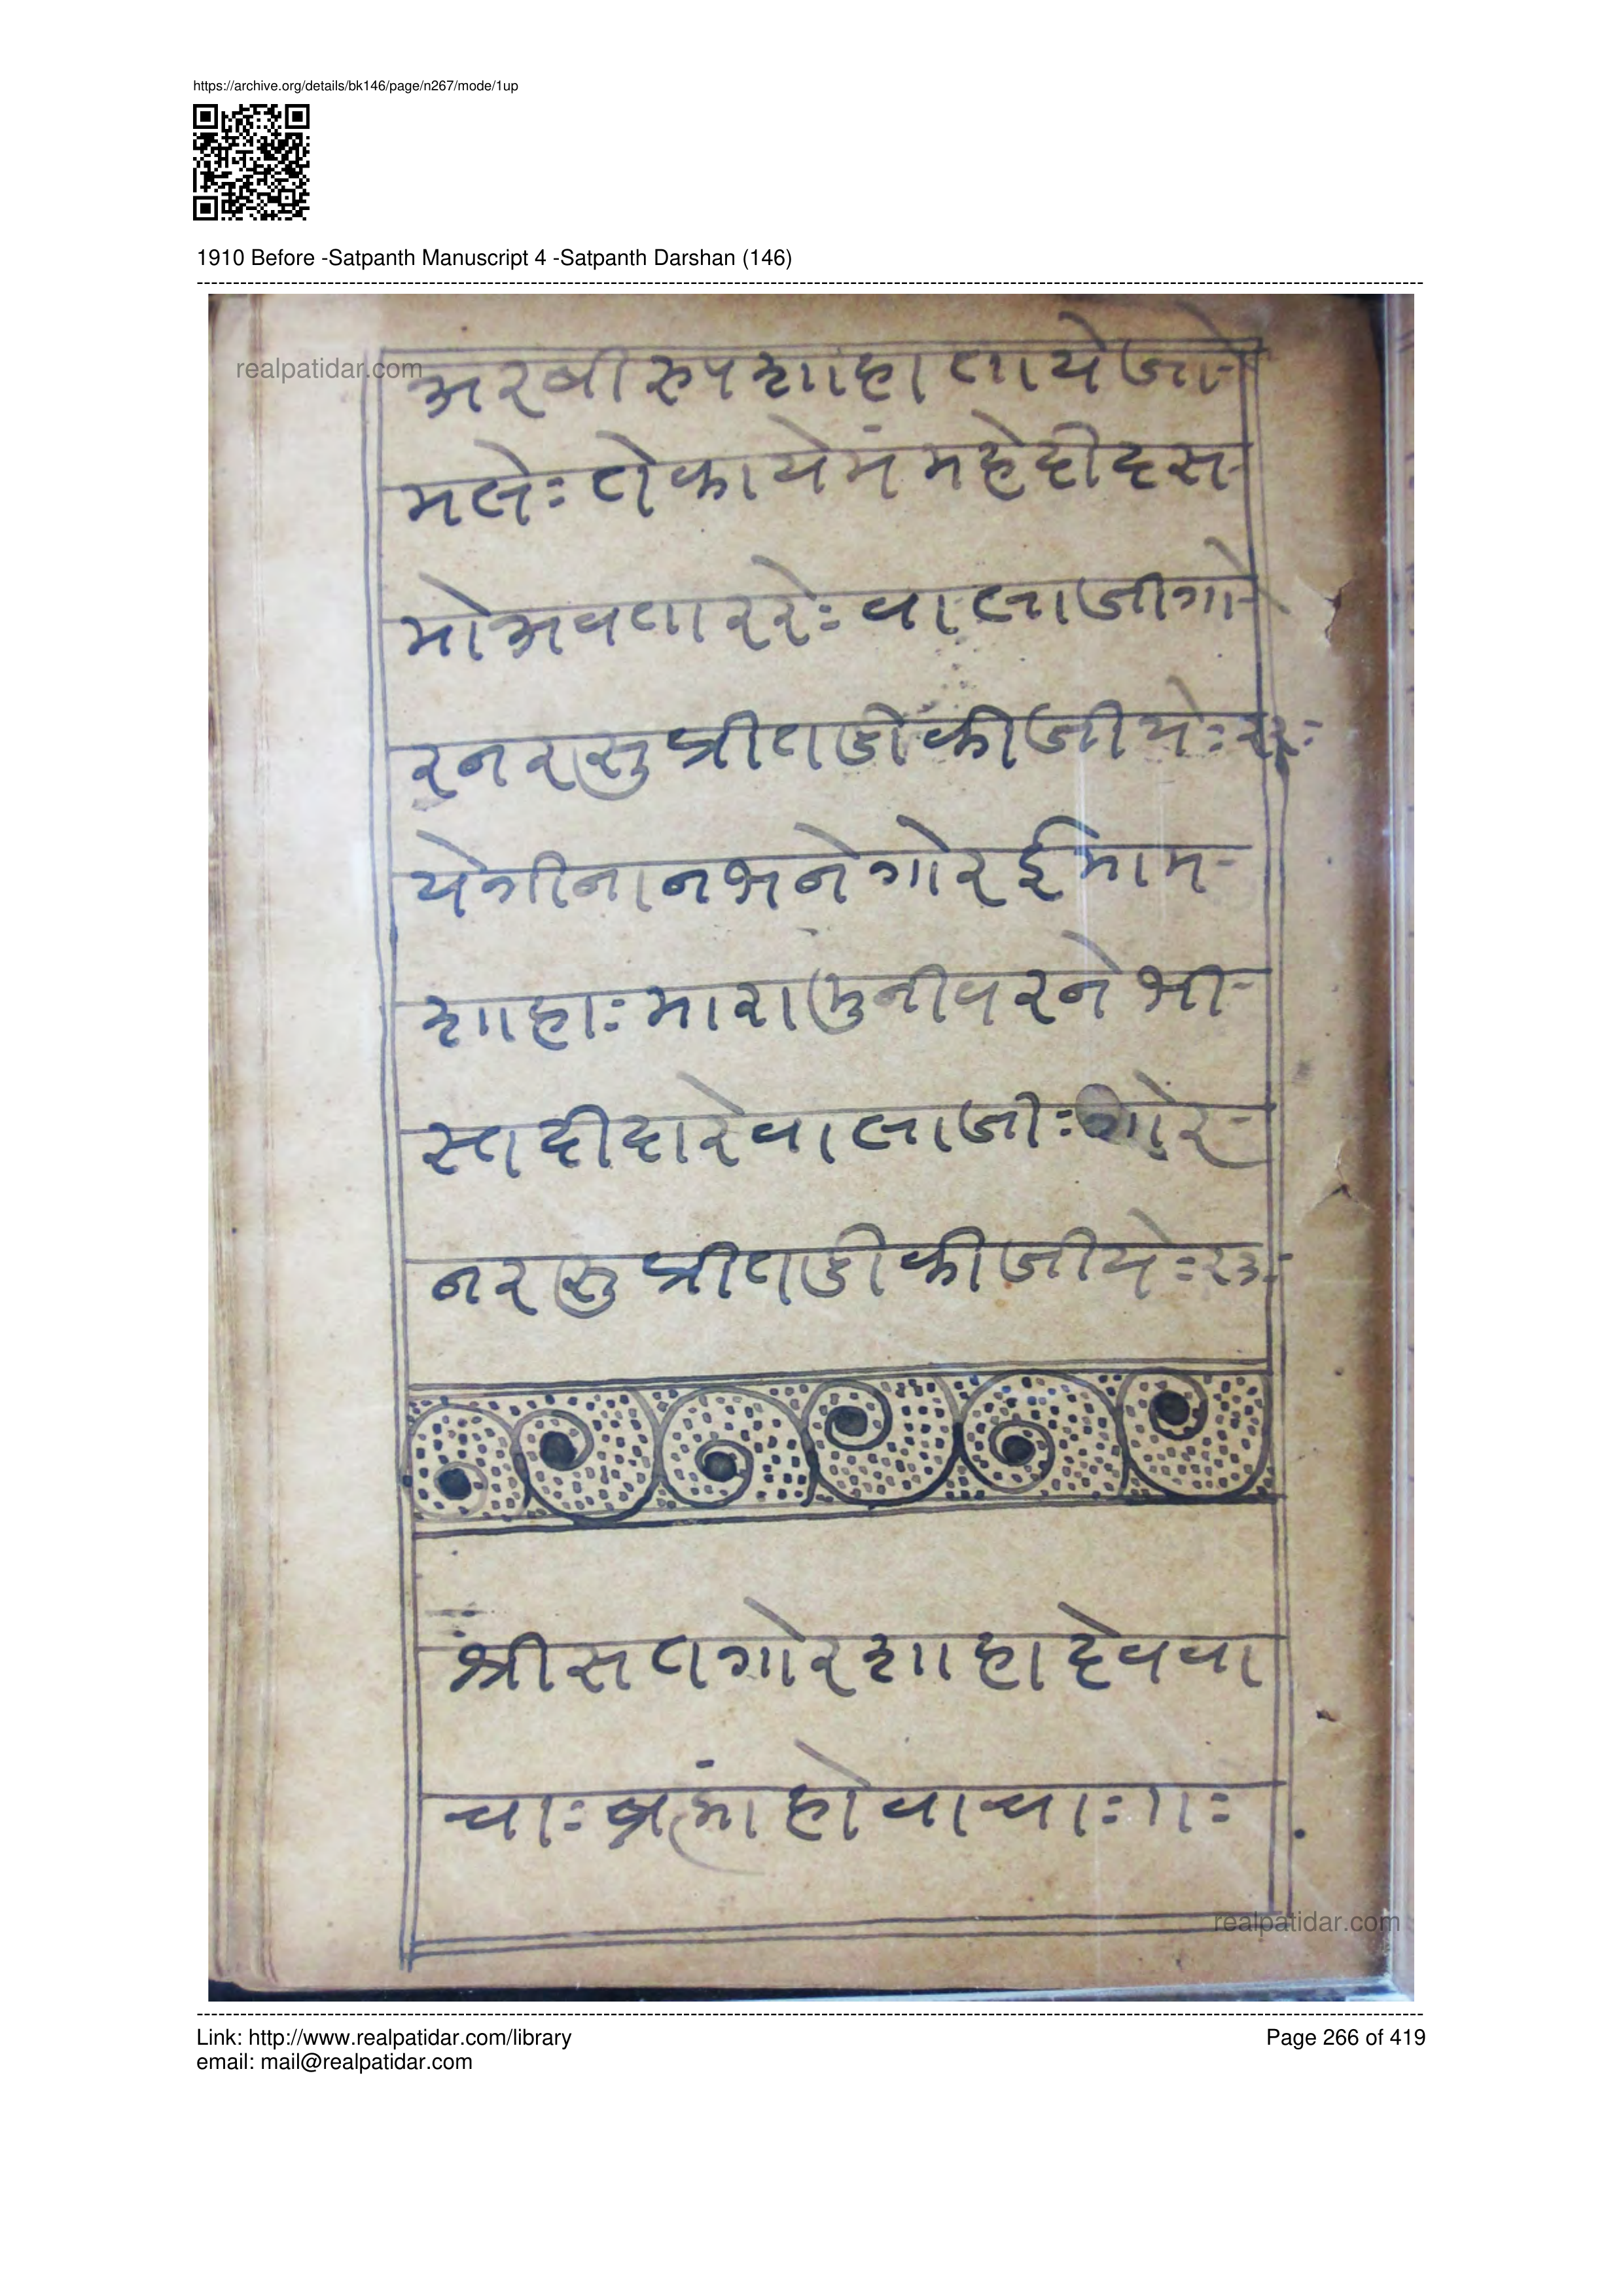 https://archive.org/details/bk146/page/n267/mode/1up
1910 Before -Satpanth Manuscript 4 -Satpanth Darshan (146)
realpatidar.com
अरबीरुपशाहातायेजो-
मलेः तोकायेमंमहेदीदस-
मोअवताररेः वालाजीगो-
रनरासुप्रीतडीकीजीयेः २२ः
येगीनानभनेगोरईमाम-
शाहाः मारामुनीवरनेभी-
स्तदीदारेवालाजीः गोर-
नरसुप्रीतडीकीजीयेः २३ः
श्रीसतगोरशाहादेववा
चाः ब्रह्मांहोवाचाः ।।ः
realpatidar.com
Link: http://www.realpatidar.com/library
Page 266 of 419
email: mail@realpatidar.com